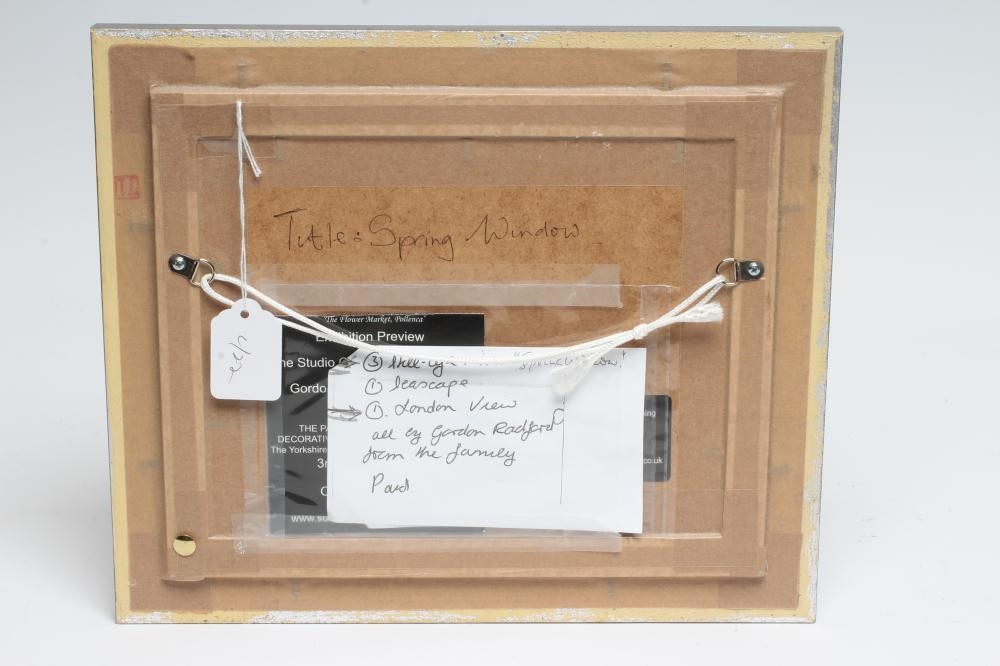 Title: Spring Window
'The Flower Market, Pollenca'
Exhibition Preview
The Studio
Gordo
THE PA
DECORATIV
The Yorkshire
3r
www.su
③
① Seascape
①. London View
all by Gordon Radford
from the family
Paid
ning
.co.uk